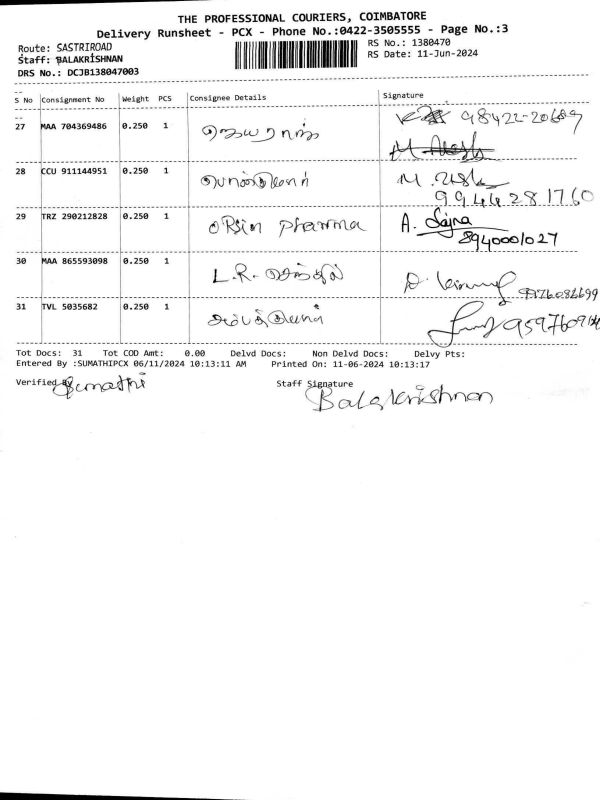 THE PROFESSIONAL COURIERS, COIMBATORE
Delivery Runsheet - PCX - Phone No.:0422-3505555 - Page No.:3
Route: SASTRIROAD
RS No.: 1380470
Staff: BALAKRISHNAN
RS Date: 11-Jun-2024
DRS No.: DCJB138047003
S No Consignment No Weight PCS Consignee Details Signature
27 MAA 704369486 0.250 1 98422-20689
28 CCU 911144951 0.250 1 M.
9944281760
29 TRZ 290212828 0.250 1 ORSin pharma A. Sajna
8940001027
30 MAA 865593098 0.250 1 L.R. செந்தில் D.
31 TVL 5035682 0.250 1
Tot Docs: 31 Tot COD Amt: 0.00 Delvd Docs: Non Delvd Docs: Delvy Pts:
Entered By :SUMATHIPCX 06/11/2024 10:13:11 AM Printed On: 11-06-2024 10:13:17
Verified By Sumathi
Staff Signature
Balakrishnan